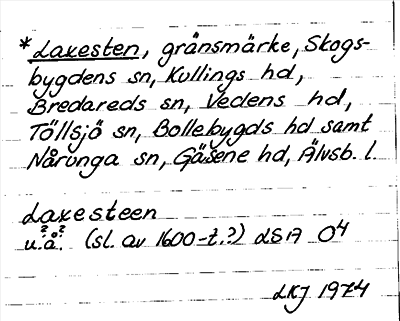 *Laxesten, gränsmärke, Skogs-
bygdens sn, Kullings hd,
Bredareds sn, Vedens hd,
Töllsjö sn, Bollebygds hd samt
Nårunga sn, Gäsene hd, Älvsb. l.
Laxesteen
u.å. (sl. av 1600-t.?) LSA O4
LKJ 1974